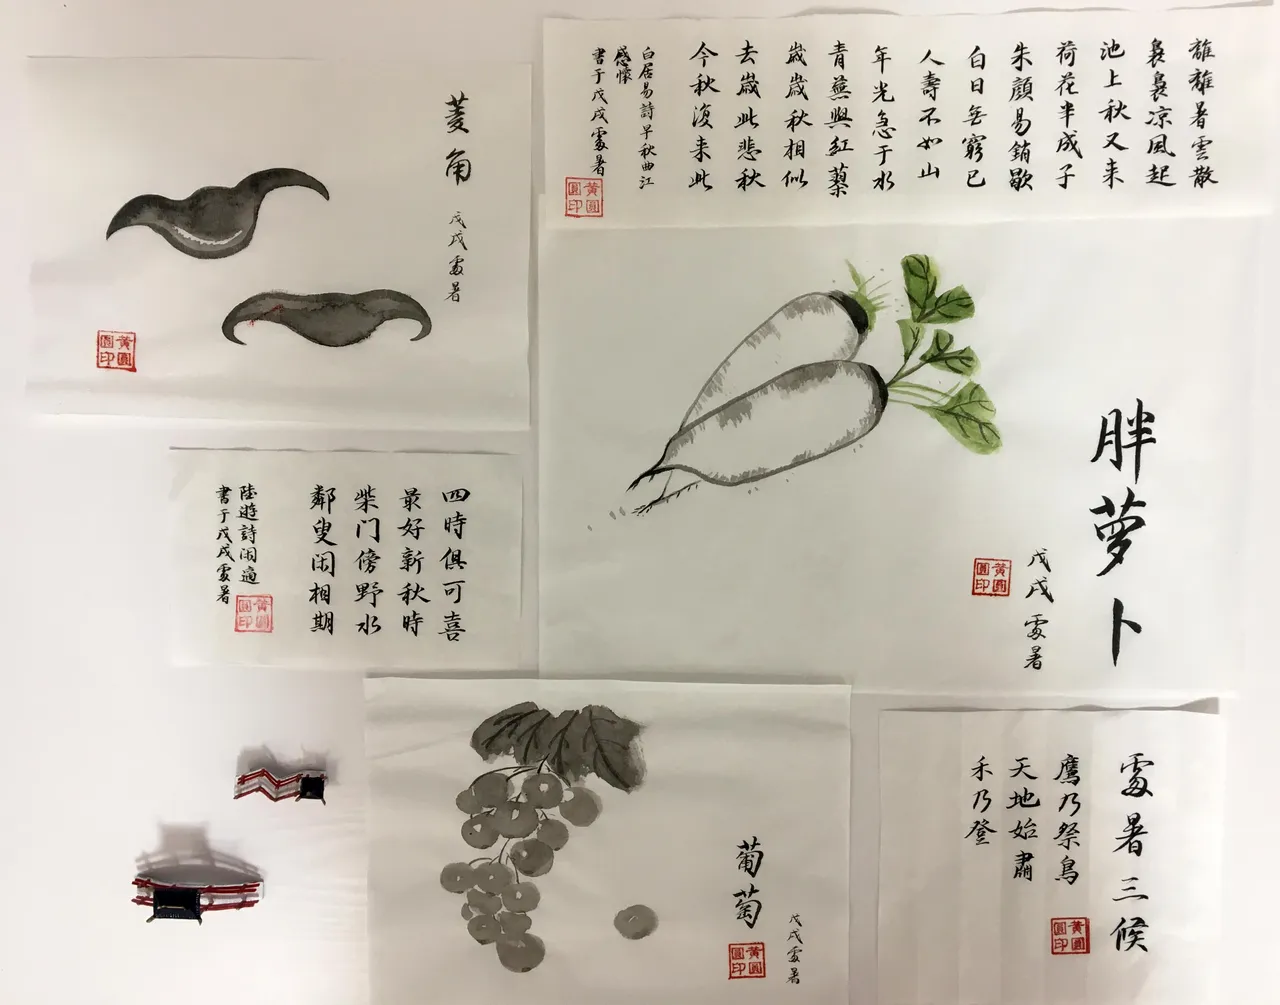 離離暑雲散
裊裊凉風起
池上秋又来
荷花半成子
朱顔易銷歇
白日無窮已
人壽不如山
年光急于水
青蕪與紅蓼
歲歲秋相似
去歲此悲秋
今秋復来此
白居易詩早秋曲江
感懷
書于戊戌處暑
黄圓
圓印
菱角
戊戌處暑
黄圓
圓印
胖萝卜
戊戌處暑
黄圓
圓印
四時俱可喜
最好新秋時
柴门傍野水
鄰叟闲相期
陸遊詩闲適
書于戊戌處暑
黄圓
圓印
葡萄
戊戌處暑
黄圓
圓印
處暑三候
鷹乃祭鳥
天地始肅
禾乃登
黄圓
圓印